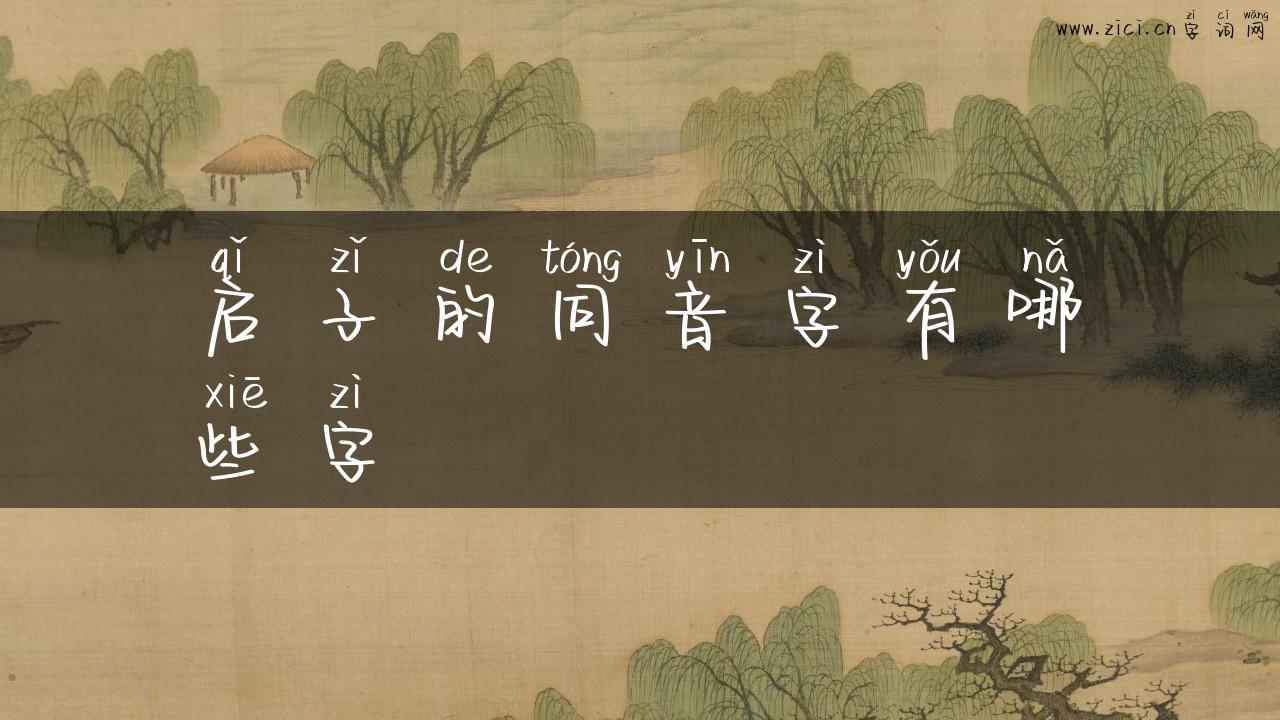 zì cí wǎng
www.zici.cn 字词网
qǐ zǐ de tóng yīn zì yǒu nǎ
启子的同音字有哪
xiē zì
些字